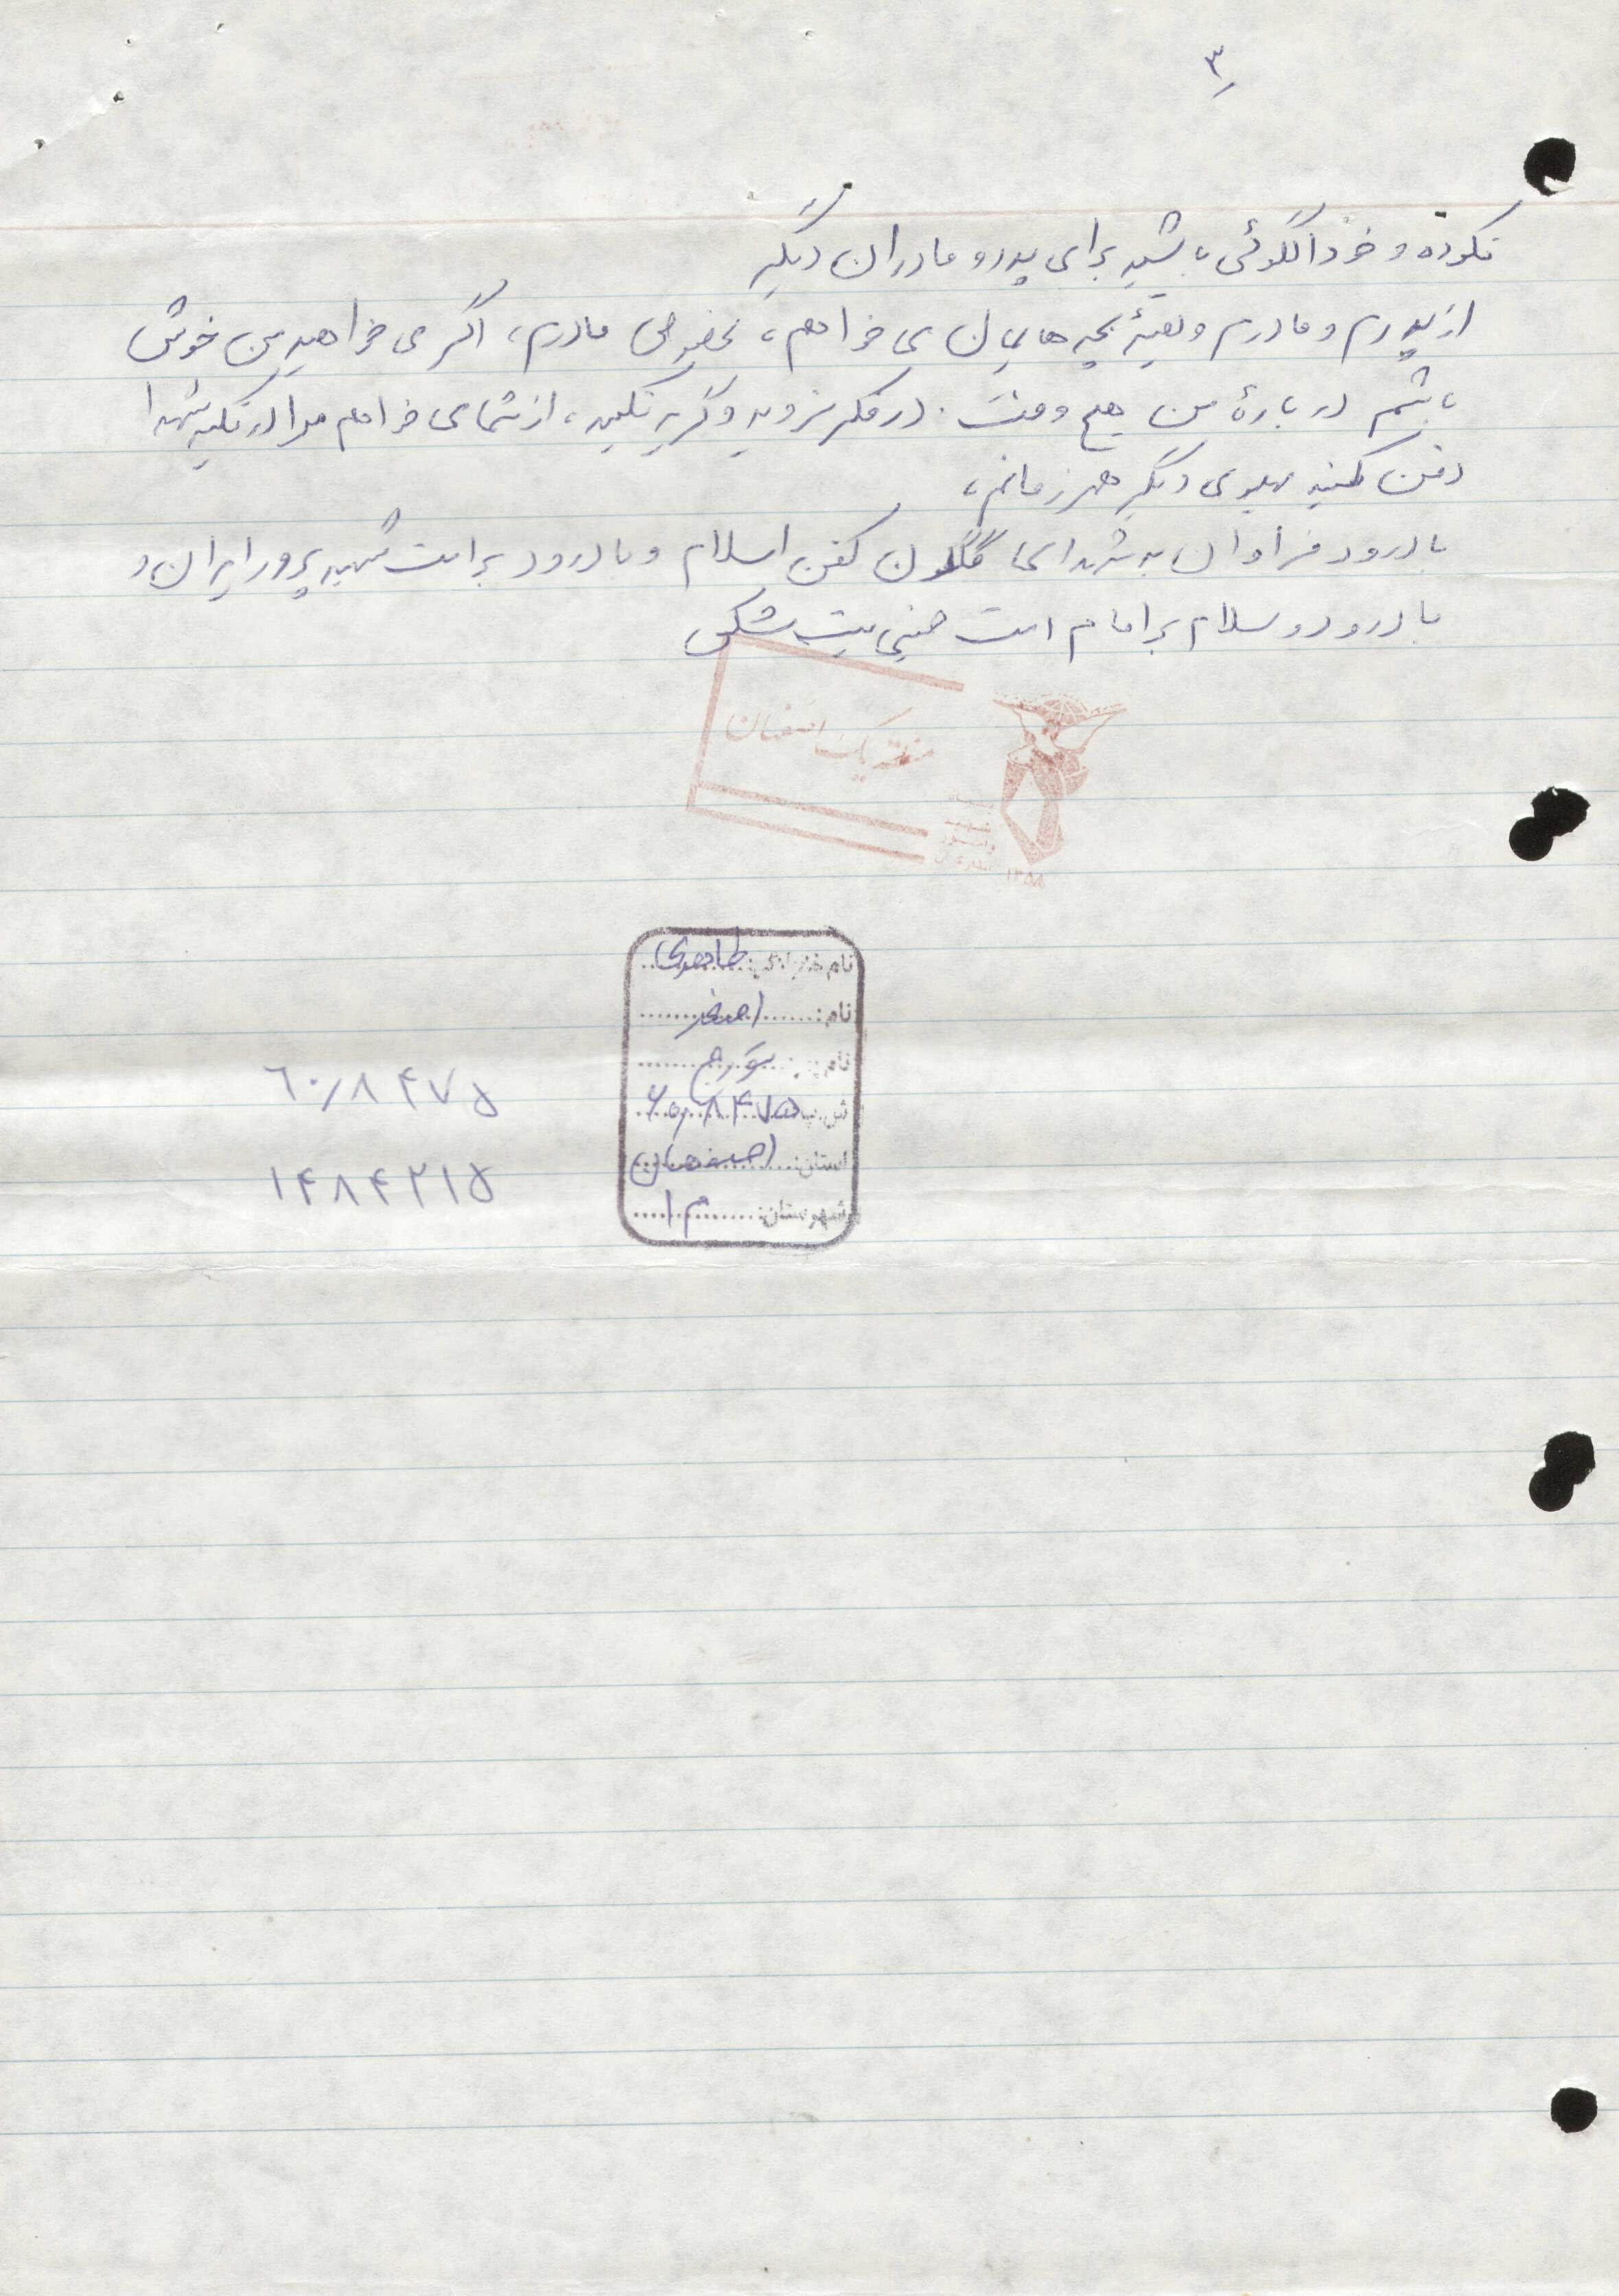 ۳
نکرده و خود الگوئی باشید برای پدر و مادران دیگر
از پدرم و مادرم و بقیهٔ بچه هایمان می خواهم، بخصوص مادرم، اگر می خواهید من خوش
باشم در بارهٔ من هیچ وقت در فکر نروید و گریه نکنید، از شما می خواهم مرا در تکیه شهدا
دفن کنید پهلوی دیگر همرزمانم،
با درود فراوان به شهدای گلگون کفن اسلام و با درود بر امت شهید پرور ایران و
با درود و سلام بر امام امت خمینی بت شکن
منطقه یک اصفهان
بنیاد شهید
۱۳۵۸
نام خانوادگی: طاهری
نام: اصغر
نام پدر: تورج
ش.پ ۶۰/۸۴۷۵
استان: اصفهان
شهرستان: م ۱
۶۰/۸۴۷۵
۱۴۸۴۲۱۵